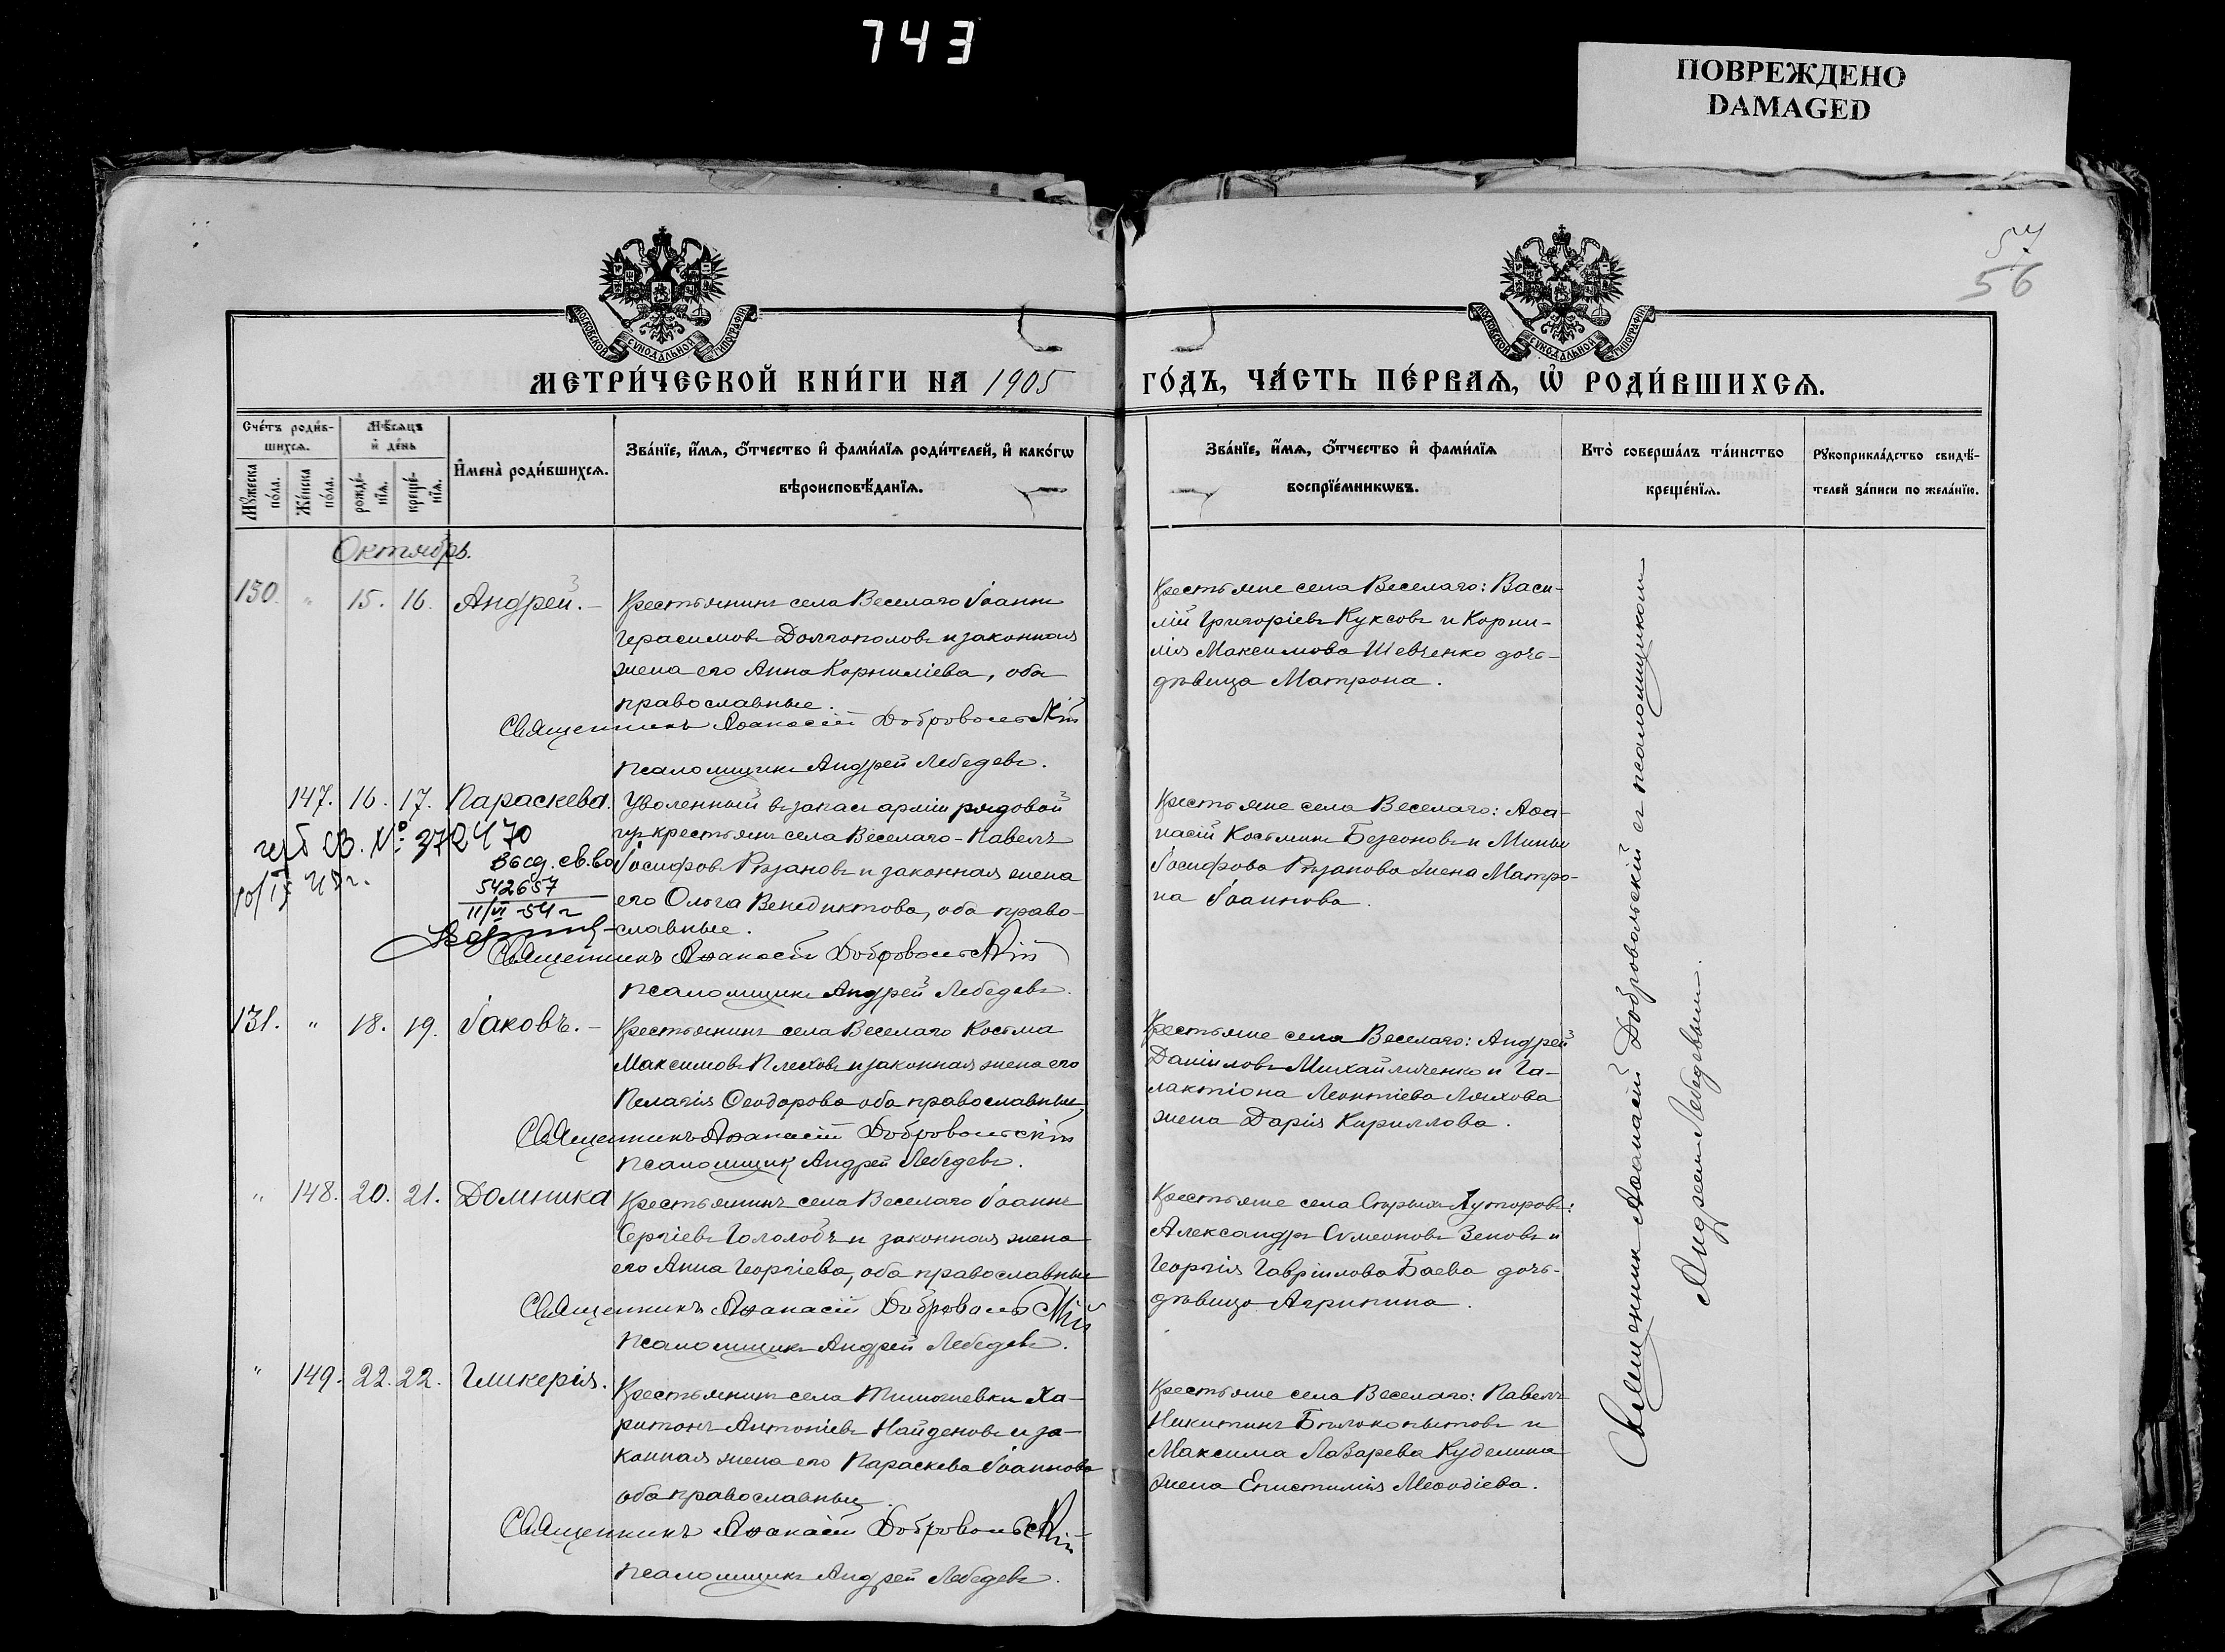 743
ПОВРЕЖДЕНО
DAMAGED
57
56
МОСКОВСКОЙ СѴНОДАЛЬНОЙ ТИПОГРАФІИ
МОСКОВСКОЙ СѴНОДАЛЬНОЙ ТИПОГРАФІИ
МЕТРИ́ЧЕСКОЙ КНИ́ГИ НА 1905 ГО́ДЪ, ЧА́СТЬ ПЕ́РВАѦ, Ѡ РОДИ́ВШИХСѦ.
Сче́тъ роди́в-
шихсѧ.
Мѣ́сѧцъ
и҆ де́нь
Мꙋ́жеска по́ла.
Же́нска по́ла.
рожде́-
нїѧ.
креще́-
нїѧ.
И҆мена̀ роди́вшихсѧ.
Зва́нїе, и҆́мѧ, ѻ҆́тчество и҆ фами́лїѧ роди́телей, и҆ како́гѡ
вѣроисповѣ́данїѧ.
Зва́нїе, и҆́мѧ, ѻ҆́тчество и҆ фами́лїѧ
воспрїе́мникѡвъ.
Кто̀ соверша́лъ та́инство
креще́нїѧ.
Рꙋкоприкла́дство свидѣ́-
телей за́писи по жела́нїю.
Октябрь.
130. " 15. 16. Андрей. –
Крестьянинъ села Веселаго Іоаннъ
Герасимовъ Долгополовъ и законная
жена его Анна Корниліева, оба
православные.
Священникъ Аѳанасій Добровольскій
Псаломщикъ Андрей Лебедевъ.
Крестьяне села Веселаго: Васи-
лій Григоріевъ Куксовъ и Корни-
лія Максимова Шевченко дочь-
дѣвица Матрона.
147. 16. 17. Параскева.
Уволенный въ запасъ арміи рядовой
изъ крестьянъ села Веселаго - Павелъ
Іосифовъ Рязановъ и законная жена
его Ольга Венедиктова, оба право-
славные.
Св. №: 372470
св.во
542657
11/VI-54 г
Священникъ Аѳанасій Добровольскій
Псаломщикъ Андрей Лебедевъ.
Крестьяне села Веселаго: Аѳа-
насій Косьминъ Безсоновъ и Мины
Іосифова Рязанова жена Матро-
на Іоаннова.
131. " 18. 19. Іаковъ. –
Крестьянинъ села Веселаго Косьма
Максимовъ Плеховъ и законная жена его
Пелагія Ѳеодорова оба православные
Священникъ Аѳанасій Добровольскій
Псаломщикъ Андрей Лебедевъ.
Крестьяне села Веселаго: Андрей
Даніиловъ Михайличенко и Га-
лактіона Леонтіева Ляхова
жена Дарія Кириллова.
" 148. 20. 21. Домника
Крестьянинъ села Веселаго Іоаннъ
Сергіевъ Гололобъ и законная жена
его Анна Георгіева, оба православные
Священникъ Аѳанасій Добровольскій
Псаломщикъ Андрей Лебедевъ.
Крестьяне села Старыхъ Хуторовъ:
Александръ Симеоновъ Зеновъ и
Георгія Гавріилова Баева дочь-
дѣвица Агрипина.
" 149. 22. 22. Гликерія.
Крестьянинъ села Тимошевки Ха-
ритонъ Антоніевъ Найденовъ и за-
конная жена его Параскева Іоаннова
оба православные.
Священникъ Аѳанасій Добровольскій
Псаломщикъ Андрей Лебедевъ.
Крестьяне села Веселаго: Павелъ
Никитинъ Бѣлокопытовъ и
Максима Лазарева Куделина
жена Епистимія Меѳодіева.
Священник Аѳанасій Добровольскій съ псаломщикомъ
Андреемъ Лебедевымъ.